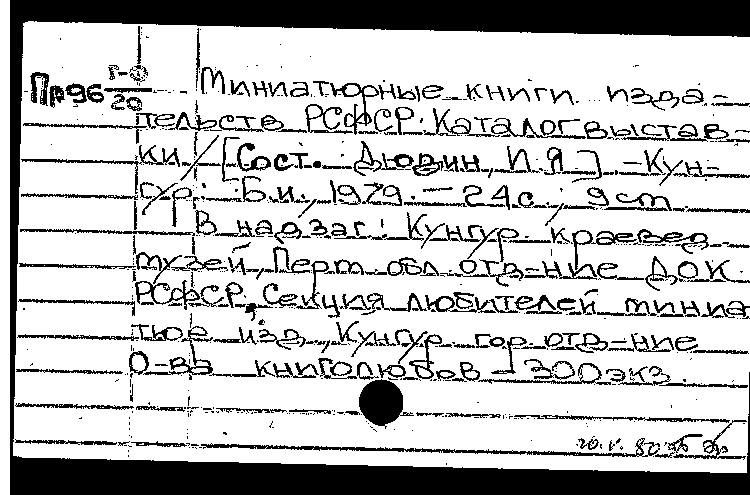 Пр96 г-0/20 Миниатюрные книги изда-
тельств РСФСР: Каталог выстав-
ки / [Сост. Дюрин, И.Я]. - Кун-
гур: Б.и., 1979. - 24с.; 9см.
В надзаг: Кунгур. краевед.
музей, Перм. обл. отд-ние ДОК
РСФСР, Секция любителей миниа
тюр изд., Кунгур. гор. отд-ние
О-ва книголюбов - 300 экз.